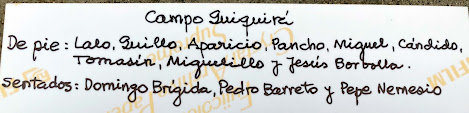 Campo Guiquirá
De pie: Lalo, Guillo, Aparicio, Pancho, Miguel, Cándido,
Tomasín, Miguelillo y Jesús Borbolla.
Sentados: Domingo Brígida, Pedro Barreto y Pepe Nemesio